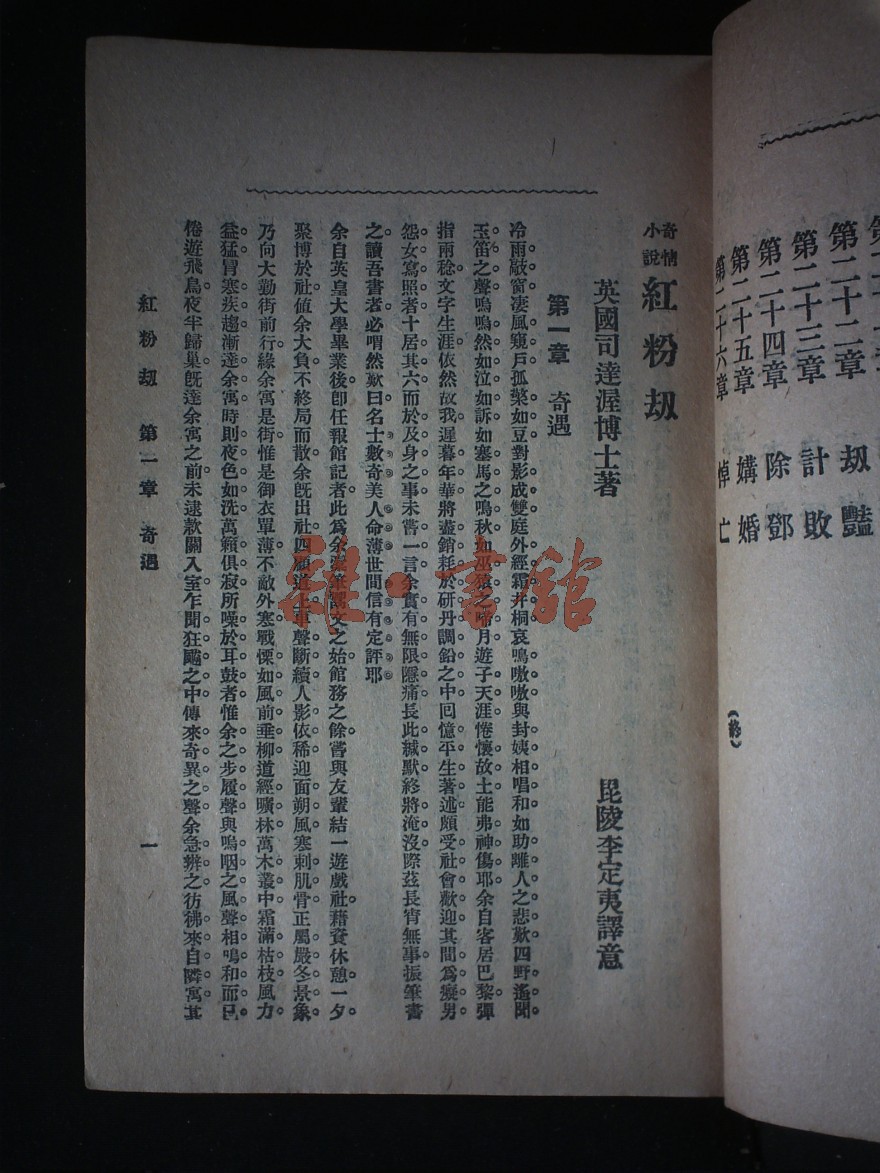 第二十二章 劫艷
第二十三章 計敗
第二十四章 除鄧
第二十五章 媾婚
第二十六章 悼亡
(終)
奇情小說 紅粉劫
英國司達渥博士著 毘陵李定夷譯意
第一章 奇遇
冷雨敲窗。凄風窺戶。孤檠如豆。對影成雙。庭外經霜井桐。哀鳴嗷嗷。與封姨相唱和。如助離人之悲歎。四野遙聞
玉笛之聲。嗚嗚然如泣如訴。如塞馬之鳴秋。如巫猿之啼月。遊子天涯。惓懷故土。能弗神傷耶。余自客居巴黎。彈
指兩稔。文字生涯。依然故我。遲暮年華。將盡銷耗於研丹調鉛之中。回憶平生著述。頗受社會歡迎。其間為癡男
怨女寫照者。十居其六。而於及身之事。未嘗一言。余實有無限隱痛。長此緘默。終將淹沒。際茲長宵無事。振筆書
之。讀吾書者。必喟然歎曰。名士數奇。美人命薄。世間信有定評耶。
余自英皇大學畢業後。即任報館記者。此為余橐筆鬻文之始。館務之餘。嘗與友輩結一遊戲社。藉資休憩。一夕。
聚博於社。值余大負。不終局而散。余既出社。四顧道上。車聲斷續。人影依稀。迎面朔風。塞刺肌骨。正屬嚴冬景象。
乃向大勤街前行。緣余寓是街。惟是御衣單薄。不敵外寒。戰慄如風前垂柳。道經曠林。萬木叢中。霜滿枯枝。風力
益猛。冒寒疾趨。漸達余寓。時則夜色如洗。萬籟俱寂。所噪於耳鼓者。惟余之步履聲。與嗚咽之風聲。相鳴和而已。
倦遊飛鳥。夜半歸巢。既達余寓之前。未逮款關入室。乍聞狂飈之中。傳來奇異之聲。余急辨之。彷彿來自隣寓。其
紅粉劫 第一章 奇遇 一
雜·書館